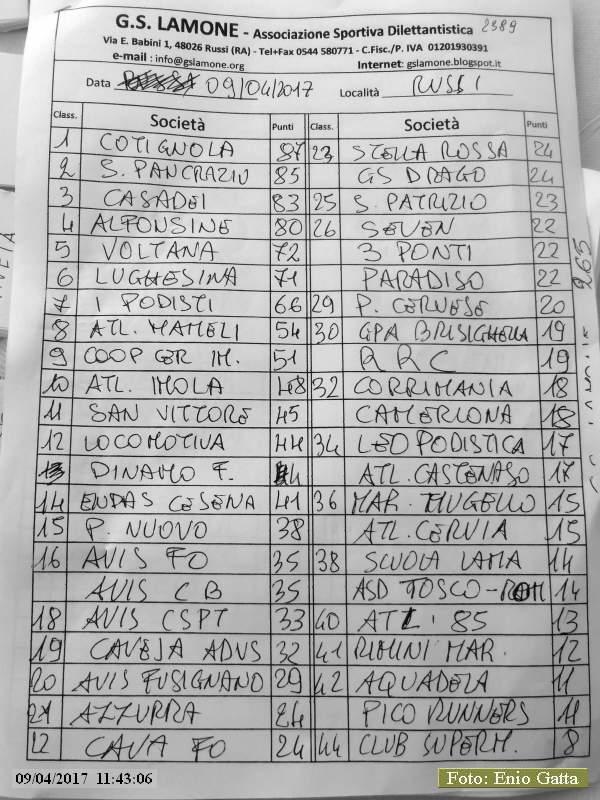 G.S. LAMONE - Associazione Sportiva Dilettantistica 2389
Via E. Babini 1, 48026 Russi (RA) - Tel+Fax 0544 580771 - C.Fisc./P. IVA 01201930391
e-mail : info@gslamone.org Internet: gslamone.blogspot.it
Data 09/04/2017 Località RUSSI
Class. Società Punti Class. Società Punti
1 COTIGNOLA 87 23 STELLA ROSSA 24
2 S. PANCRAZIO 85 GS DRAGO 24
3 CASADEI 83 25 S. PATRIZIO 23
4 ALFONSINE 80 26 SEVEN 22
5 VOLTANA 72 3 PONTI 22
6 LUGHESINA 71 PARADISO 22
7 I PODISTI 66 29 P. CERVESE 20
8 ATL. MAMELI 54 30 GPA BRISIGHELLA 19
9 COOP CER IM. 51 RRC 19
10 ATL. IMOLA 48 32 CORRIMANIA 18
11 SAN VITTORE 45 CAMERLONA 18
12 LOCOMOTIVA 44 34 LEO PODISTICA 17
DINAMO F. 44 ATL. CASTENASO 17
14 ENDAS CESENA 41 36 MAR. MUGELLO 15
15 P. NUOVO 38 ATL. CERVIA 15
16 AVIS FO 35 38 SCUOLA LAMA 14
AVIS CB 35 ASD TOSCO-ROM 14
18 AVIS CSPT 33 40 ATL. 85 13
19 CAVEJA ADVS 32 41 RIMINI MAR. 12
20 AVIS FUSIGNANO 29 42 AQUADELA 11
21 AZZURRA 24 PICO RUNNERS 11
22 CAVA FO 24 44 CLUB SUPERM. 8
265
09/04/2017 11:43:06
Foto: Enio Gatta